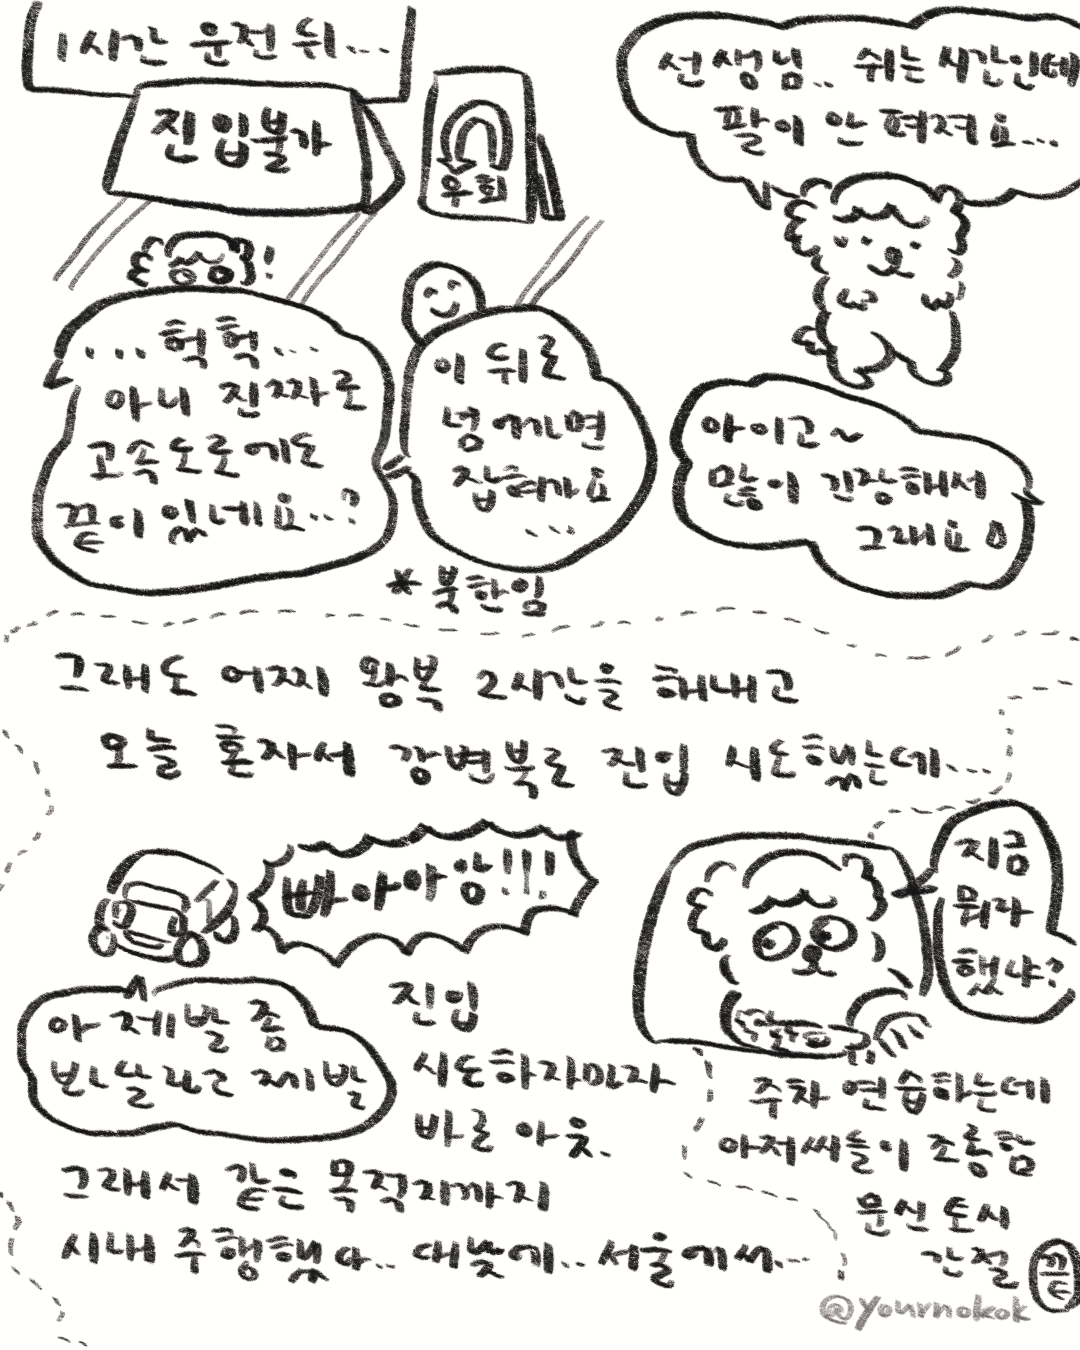 1시간 운전 뒤...
진입불가
우회
!
...헉헉...
아니 진짜로
고속도로에도
끝이 있네요..?
이 뒤로
넘어가면
잡혀가요
...
*북한임
선생님.. 쉬는 시간인데
팔이 안 펴져요...
아이고~
많이 긴장해서
그래요
그래도 어찌 왕복 2시간을 해내고
오늘 혼자서 강변북로 진입 시도했는데...
빠아아앙!!!
아 제발 좀
봐달라고 제발
진입
시도하자마자
바로 아웃.
그래서 같은 목적지까지
시내 주행했다.. 대낮에.. 서울에서...
지금
뭐라
했냐?
주차 연습하는데
아저씨들이 조롱함
문신 토시
간절
끝
@yournokok